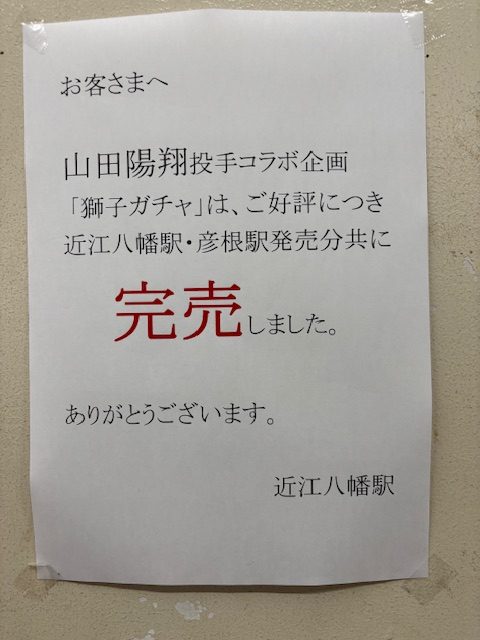 お客さまへ
山田陽翔投手コラボ企画
「獅子ガチャ」は、ご好評につき
近江八幡駅・彦根駅発売分共に
完売しました。
ありがとうございます。
近江八幡駅